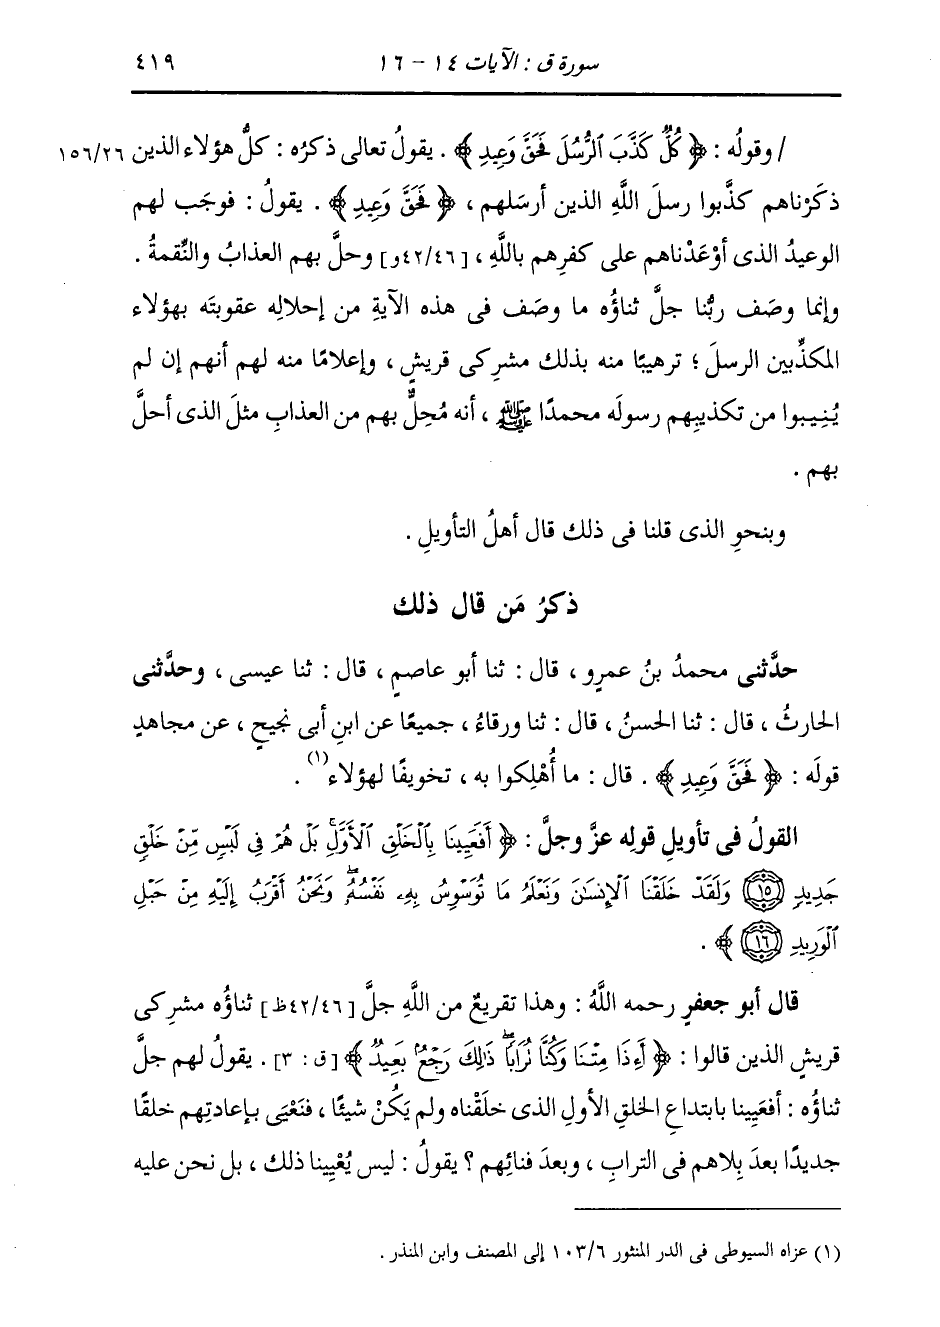 سورة ق : الآيات ١٤ - ١٦ ٤١٩
/ وقولُه : ﴿ كُلٌّ كَذَّبَ ٱلرُّسُلَ فَحَقَّ وَعِيدِ ﴾ . يقولُ تعالى ذكرُه : كلُّ هؤلاء الذين ١٥٦/٢٦
ذكَرْناهم كذَّبوا رسلَ اللَّهِ الذين أرسَلهم ، ﴿ فَحَقَّ وَعِيدِ ﴾ . يقولُ : فوجَب لهم
الوعيدُ الذى أوْعَدْناهم على كفرِهم باللَّهِ ، [٤٢/٤٦و] وحلَّ بهم العذابُ والنِّقمةُ .
وإنما وصَف ربُّنا جلَّ ثناؤُه ما وصَف فى هذه الآيةِ من إحلالِه عقوبتَه بهؤلاء
المكذِّبين الرسلَ ؛ ترهيبًا منه بذلك مشركى قريشٍ ، وإعلامًا منه لهم أنهم إن لم
يُنِيبوا من تكذيبِهم رسولَه محمدًا ﷺ ، أنه مُحِلٌّ بهم من العذابِ مثلَ الذى أحلَّ
بهم .
وبنحوِ الذى قلنا فى ذلك قال أهلُ التأويلِ .
ذكرُ مَن قال ذلك
حدَّثنى محمدُ بنُ عمرٍو ، قال : ثنا أبو عاصمٍ ، قال : ثنا عيسى ، وحدَّثنى
الحارثُ ، قال : ثنا الحسنُ ، قال : ثنا ورقاءُ ، جميعًا عن ابنِ أبى نجيحٍ ، عن مجاهدٍ
قولَه : ﴿ فَحَقَّ وَعِيدِ ﴾ . قال : ما أُهْلِكوا به ، تخويفًا لهؤلاء(١) .
القولُ فى تأويلِ قولِه عزَّ وجلَّ : ﴿ أَفَعَيِينَا بِٱلْخَلْقِ ٱلْأَوَّلِۚ بَلْ هُمْ فِى لَبْسٍ مِّنْ خَلْقٍ
جَدِيدٍ ١٥ وَلَقَدْ خَلَقْنَا ٱلْإِنسَٰنَ وَنَعْلَمُ مَا تُوَسْوِسُ بِهِۦ نَفْسُهُۥۖ وَنَحْنُ أَقْرَبُ إِلَيْهِ مِنْ حَبْلِ
ٱلْوَرِيدِ ١٦ ﴾ .
قال أبو جعفرٍ رحمه اللَّهُ : وهذا تقريعٌ من اللَّهِ جلَّ [٤٢/٤٦ظ] ثناؤُه مشركى
قريشٍ الذين قالوا : ﴿ أَءِذَا مِتْنَا وَكُنَّا تُرَابًاۖ ذَٰلِكَ رَجْعٌۢ بَعِيدٌ ﴾ [ق : ٣] . يقولُ لهم جلَّ
ثناؤُه : أفعَيِينا بابتداعِ الخلقِ الأولِ الذى خلَقْناه ولم يَكُنْ شيئًا ، فنَعْيَى بإعادتِهم خلقًا
جديدًا بعدَ بِلاهم فى الترابِ ، وبعدَ فنائِهم ؟ يقولُ : ليس يُعْيِينا ذلك ، بل نحن عليه
(١) عزاه السيوطى فى الدر المنثور ١٠٣/٦ إلى المصنف وابن المنذر .